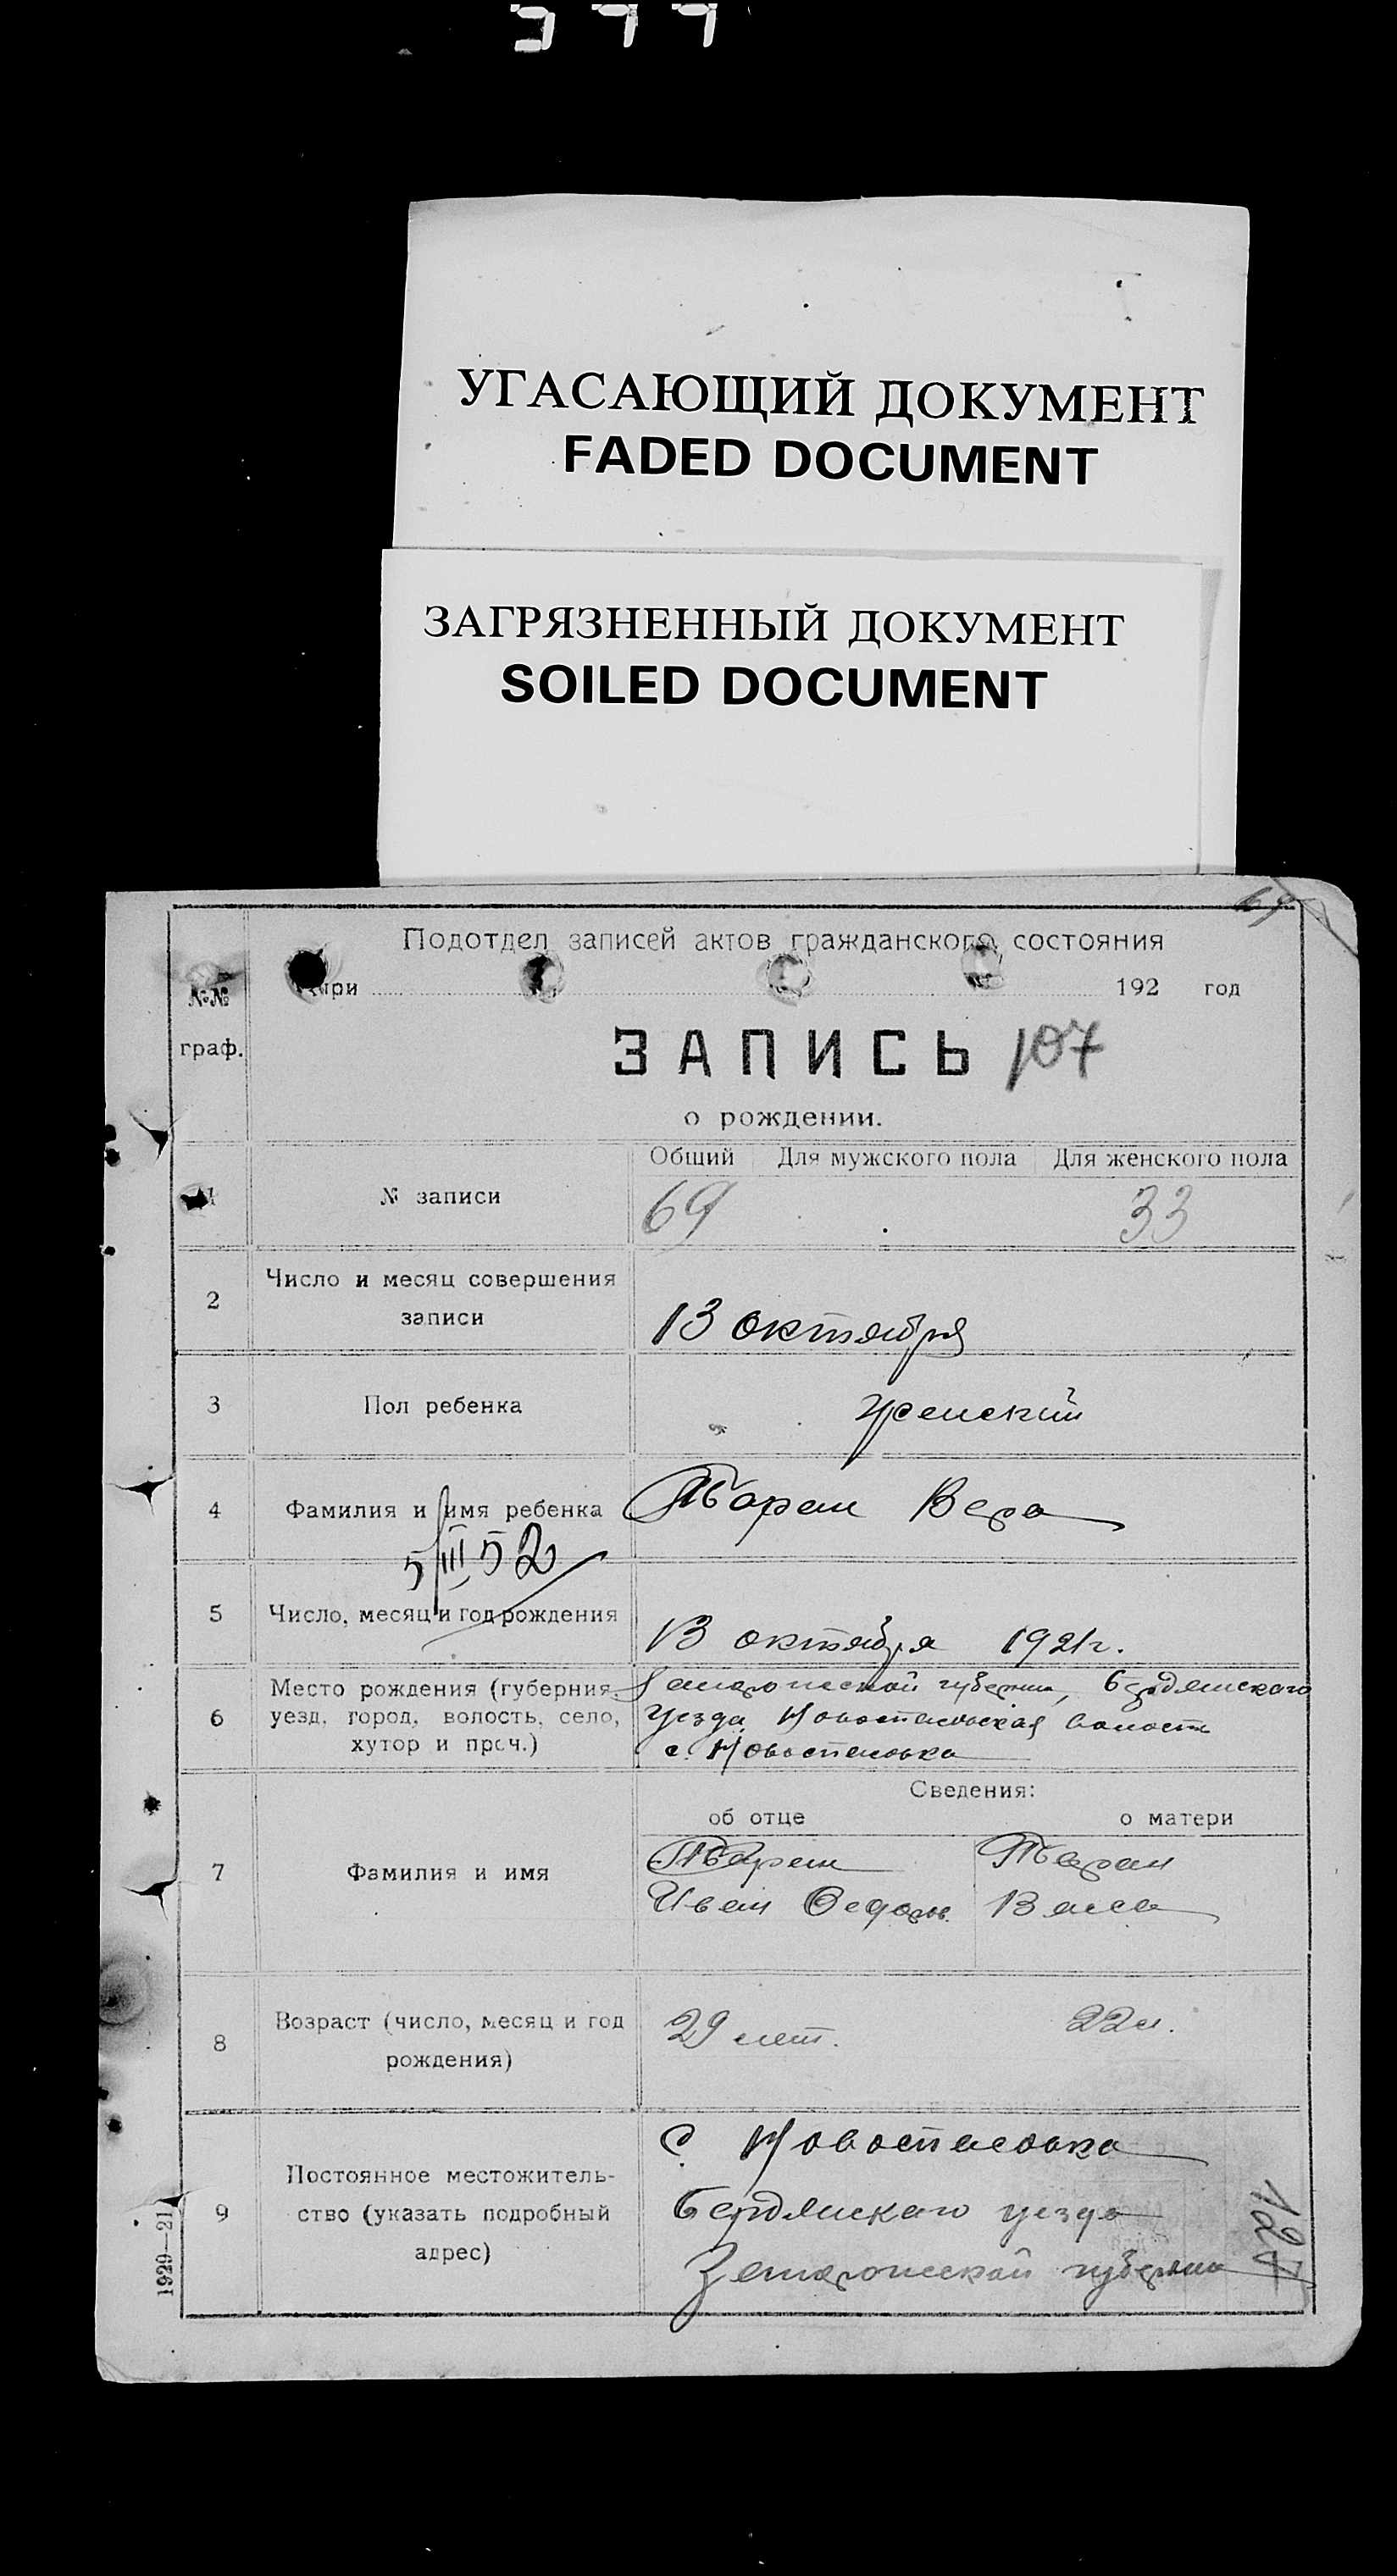 УГАСАЮЩИЙ ДОКУМЕНТ
FADED DOCUMENT
ЗАГРЯЗНЕННЫЙ ДОКУМЕНТ
SOILED DOCUMENT
69
Подотдел записей актов гражданского состояния
при 192 год
№№
граф.
ЗАПИСЬ 107
о рождении.
Общий Для мужского пола Для женского пола
1 № записи 69 33
2 Число и месяц совершения
записи
13 октября
3 Пол ребенка женский
4 Фамилия и имя ребенка Таран Вера
5/III 52
5 Число, месяц и год рождения
13 октября 1921 г.
6 Место рождения (губерния,
уезд, город, волость, село,
хутор и проч.)
губернии, Бердянского
Уезда, волость
с. Новоспасовка
Сведения:
об отце о матери
7 Фамилия и имя
Таран Таран
Иван Федоров.
8 Возраст (число, месяц и год
рождения)
29 лет. 22 л.
9 Постоянное местожитель-
ство (указать подробный
адрес)
с. Новоспасовка
Бердянскаго уезда
губернии
1929—21